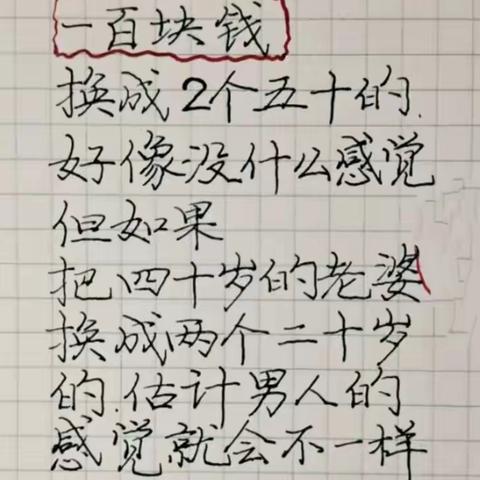 一百块钱
换成2个五十的.
好像没什么感觉
但如果
把四十岁的老婆
换成两个二十岁
的.估计男人的
感觉就会不一样